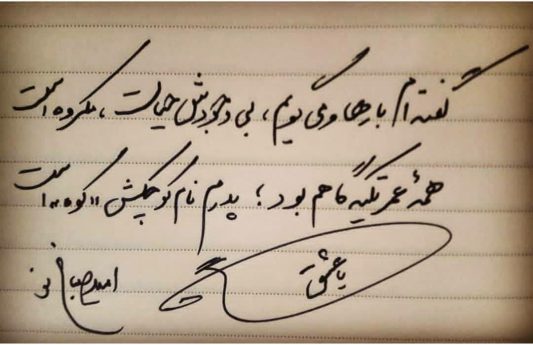 گفته‌ام بارها و می‌گویم، بی وجودش حیات، مکروه است
همهٔ عمر تکیه‌گاهم بود؛ پدرم نام کوچکش "کوه" است
یا عشق
امید صباغ نو